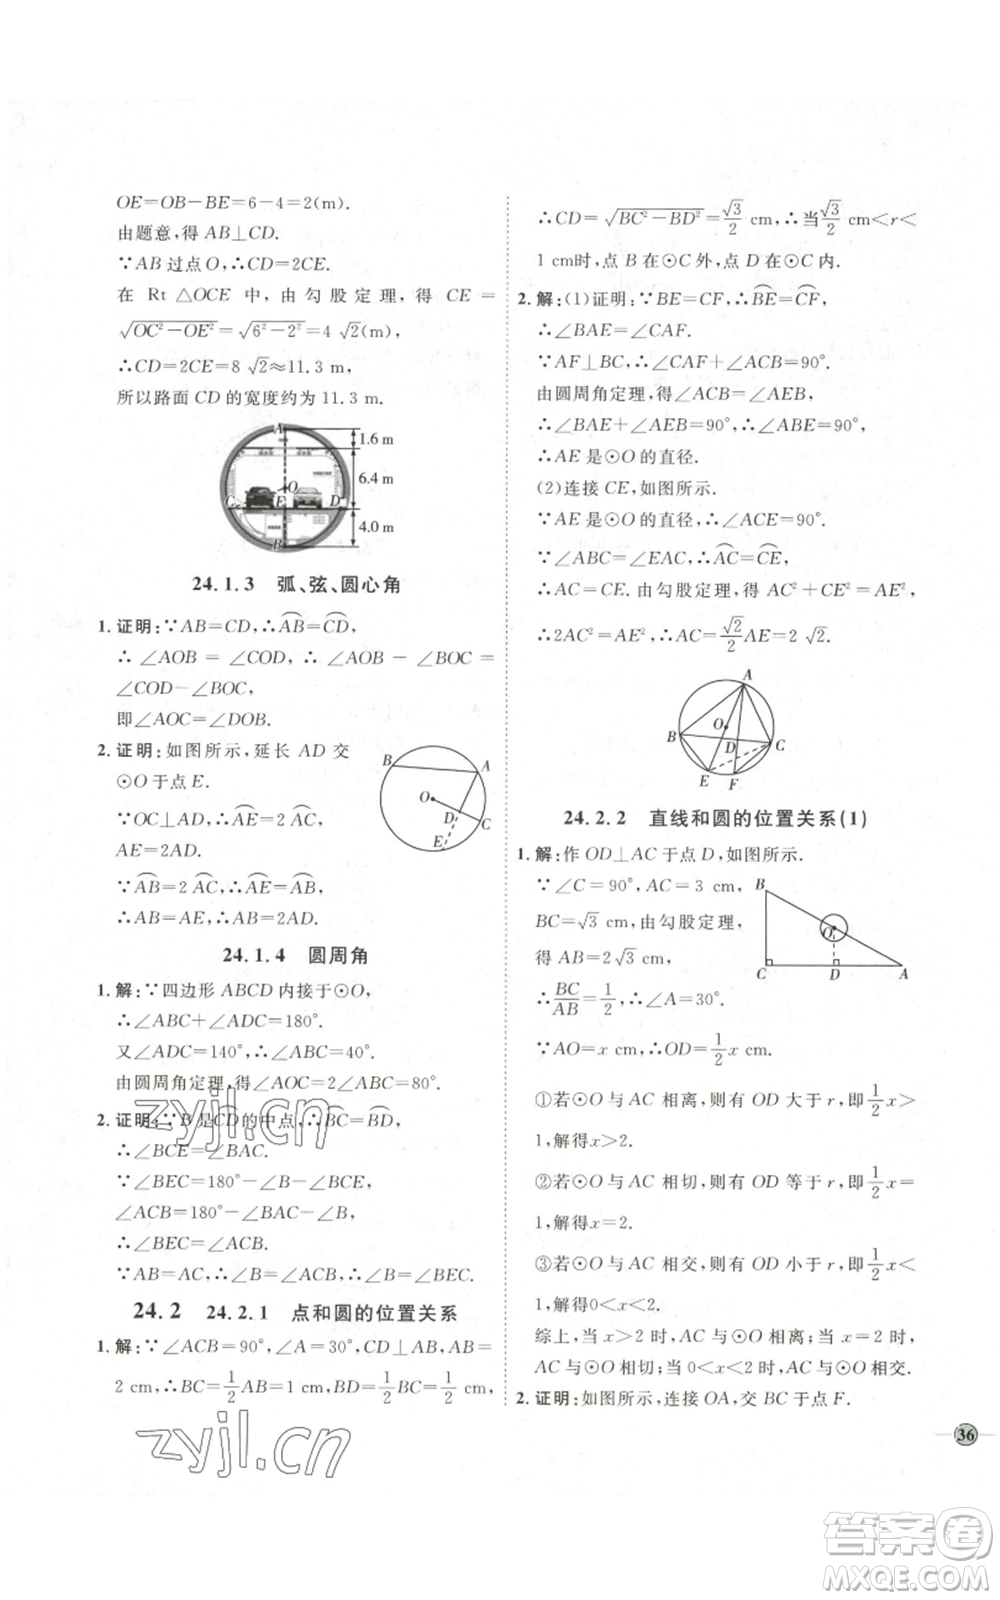 OE=OB−BE=6−4=2(m).
由题意,得 AB⊥CD.
∵AB 过点 O,∴CD=2CE.
在 Rt △OCE 中,由勾股定理,得 CE=
√(OC²−OE²)=√(6²−2²)=4 √2(m).
∴CD=2CE=8 √2≈11.3 m.
所以路面 CD 的宽度约为 11.3 m.
A
1.6 m
6.4 m
O
C E D
4.0 m
B
24.1.3 弧、弦、圆心角
1. 证明:∵AB=CD,∴⌒AB=⌒CD.
∴ ∠AOB = ∠COD, ∴ ∠AOB − ∠BOC =
∠COD−∠BOC,
即∠AOC=∠DOB.
2. 证明:如图所示,延长 AD 交
⊙O 于点 E.
∵OC⊥AD,∴⌒AE=2⌒AC,
AE=2AD.
∵⌒AB=2 ⌒AC,∴⌒AE=⌒AB.
∴AB=AE,∴AB=2AD.
B A
O
D
C
E
24.1.4 圆周角
1. 解:∵四边形 ABCD 内接于⊙O,
∴∠ABC+∠ADC=180°.
又∠ADC=140°,∴∠ABC=40°.
由圆周角定理,得∠AOC=2∠ABC=80°.
2. 证明:∵B是CD的中点,∴BC=BD,
∴∠BCE=∠BAC.
∵∠BEC=180°−∠B−∠BCE,
∠ACB=180°−∠BAC−∠B,
∴∠BEC=∠ACB.
∵AB=AC,∴∠B=∠ACB,∴∠B=∠BEC.
24.2 24.2.1 点和圆的位置关系
1. 解:∵∠ACB=90°,∠A=30°,CD⊥AB,AB=
2 cm,∴BC=1/2AB=1 cm,BD=1/2BC=1/2cm,
∴CD=√(BC²−BD²)=√3/2 cm,∴当√3/2cm<r<
1 cm时,点 B 在⊙C 外,点 D 在⊙C 内.
2. 解:(1)证明:∵BE=CF,∴⌒BE=⌒CF.
∴∠BAE=∠CAF.
∵AF⊥BC,∴∠CAF+∠ACB=90°.
由圆周角定理,得∠ACB=∠AEB,
∴∠BAE+∠AEB=90°,∴∠ABE=90°.
∴AE 是⊙O 的直径.
(2)连接 CE,如图所示.
∵AE 是⊙O 的直径,∴∠ACE=90°.
∵∠ABC=∠EAC,∴⌒AC=⌒CE,
∴AC=CE.由勾股定理,得 AC²+CE²=AE²,
∴2AC²=AE²,∴AC=√2/2AE=2 √2.
A
O
B D C
E F
24.2.2 直线和圆的位置关系(1)
1. 解:作 OD⊥AC 于点 D,如图所示.
∵∠C=90°,AC=3 cm,
BC=√3 cm,由勾股定理,
得 AB=2√3 cm,
∴BC/AB=1/2,∴∠A=30°.
∵AO=x cm,∴OD=1/2x cm.
B
O
C D A
①若⊙O 与 AC 相离,则有 OD 大于 r,即1/2x>
1,解得x>2.
②若⊙O 与 AC 相切,则有 OD 等于 r,即1/2x=
1,解得x=2.
③若⊙O 与 AC 相交,则有 OD 小于 r,即1/2x<
1,解得0<x<2.
综上,当 x>2 时,AC与⊙O 相离;当x=2 时,
AC与⊙O 相切;当 0<x<2 时,AC与⊙O 相交.
2. 证明:如图所示,连接 OA,交 BC 于点 F.
36
zyjl.cn
zyjl.cn
答案卷
MXQE.COM